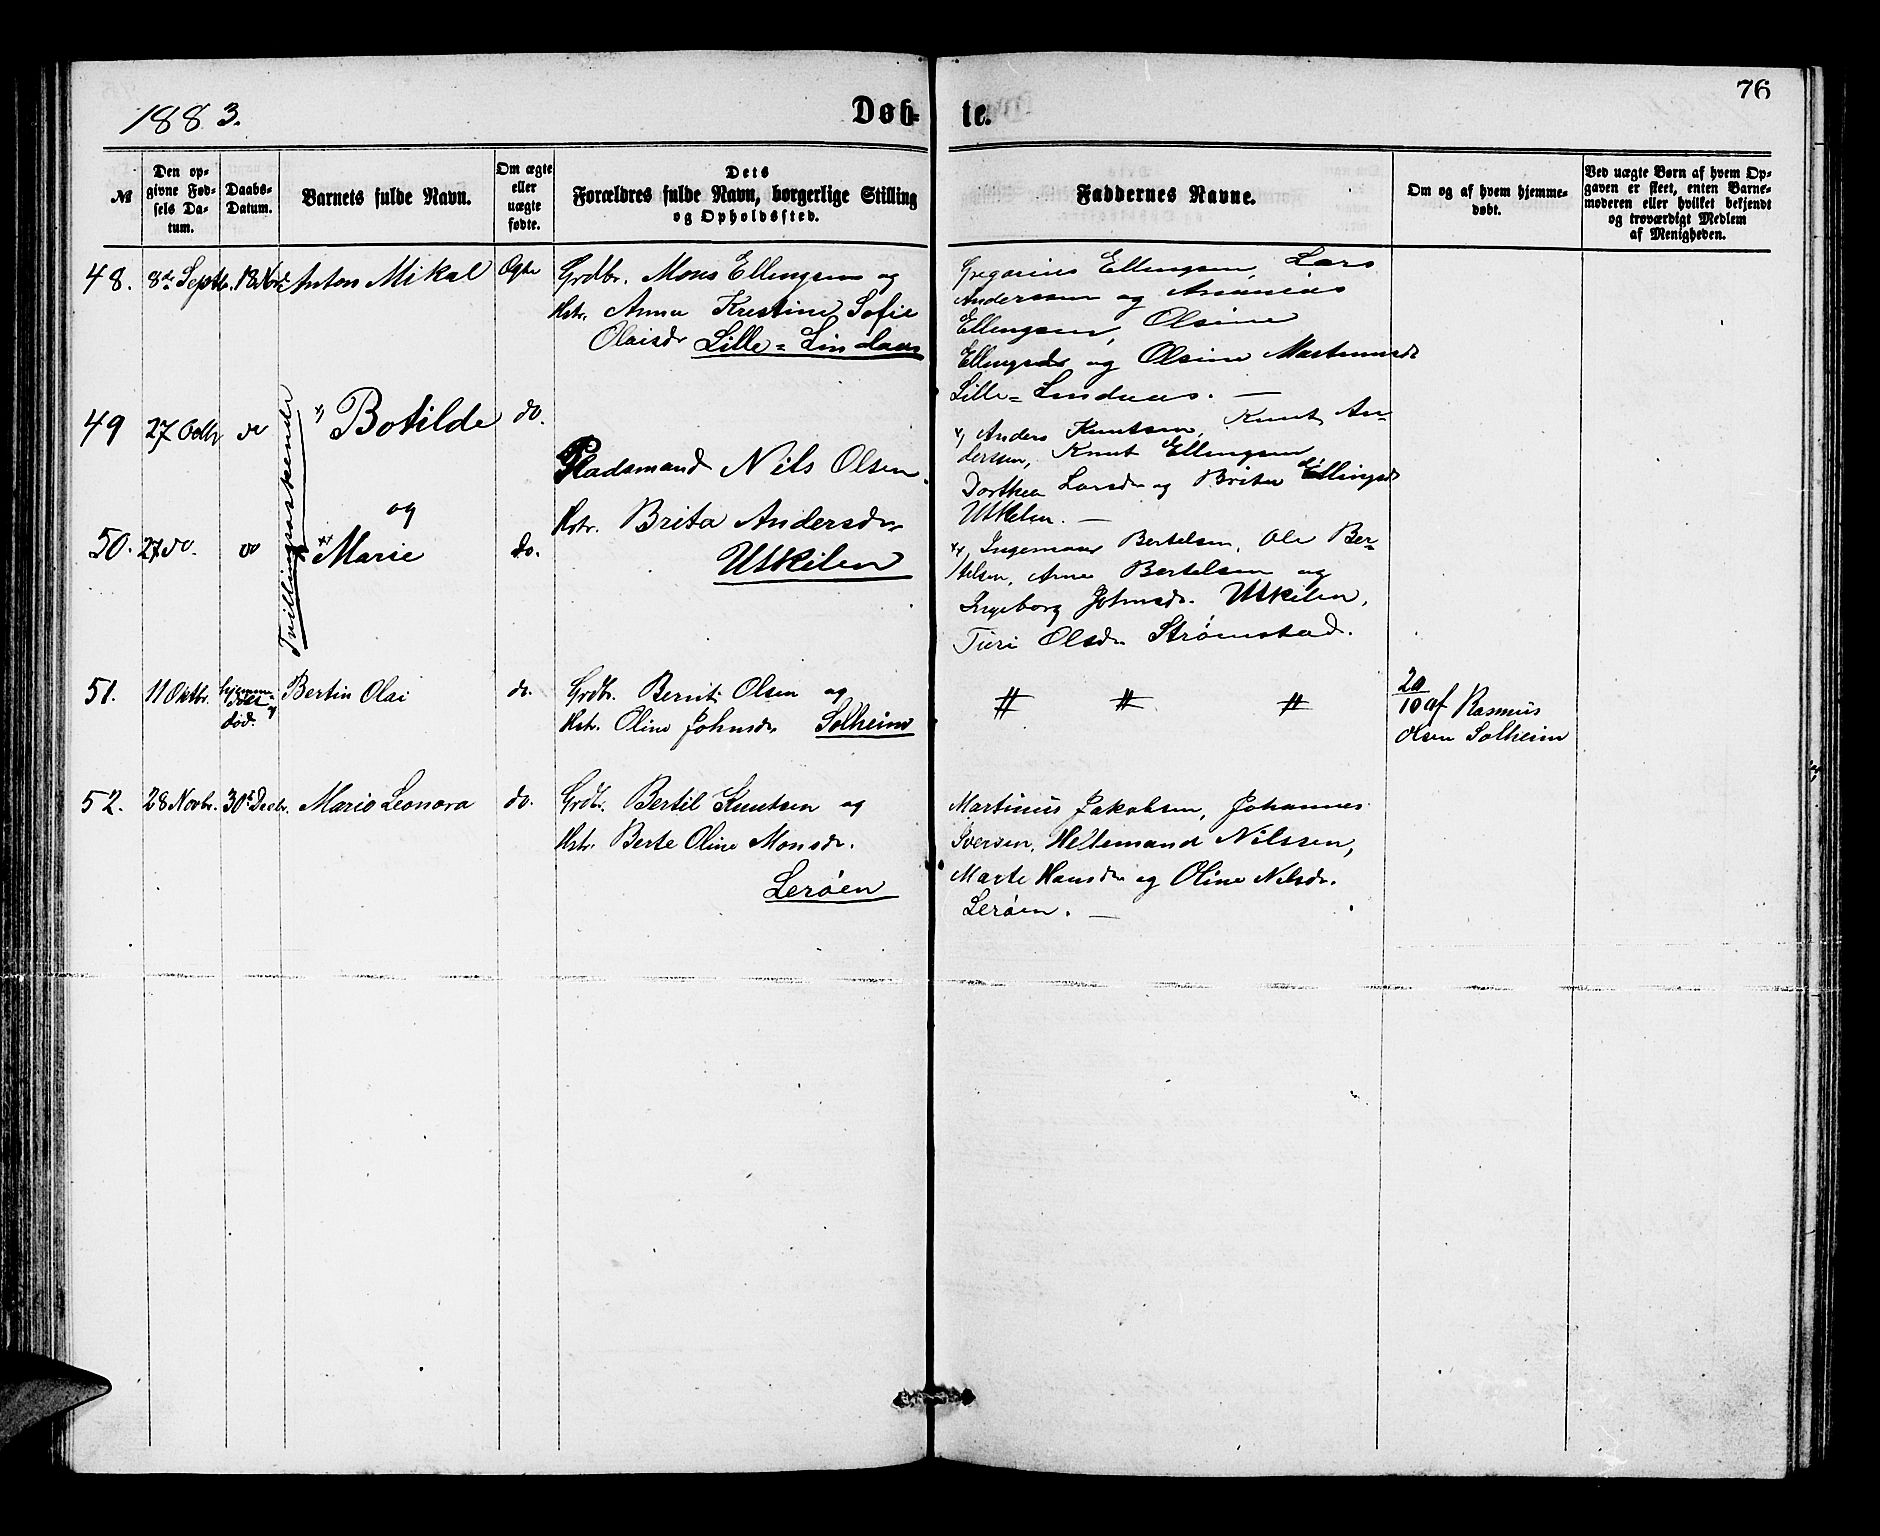 76
1883.
Døb-
te.
№
Den op-
givne Fød-
sels Da-
tum.
Daabs-
Datum.
Barnets fulde Navn.
Om ægte
eller
uægte
fødte.
Dets
Forældres fulde Navn, borgerlige Stilling
og Opholdssted.
Faddernes Navne.
Om og af hvem hjemme-
døbt.
Ved uægte Børn af hvem Op-
gaven er skeet, enten Barne-
moderen eller hvilket bekjendt
og troværdigt Medlem
af Menigheden.
48. 8de Septb. 18 Nov. Anton Mikal Ægte
Grdbr. Mons Ellingsen og
Hstr. Anna Kristine Sofie
Olaisdr Lille=Lindaas
Gregorius Ellingsen, Lars
Anderssen og Ananias
Ellingsen, Olsine
Ellingsdr og Olsine Martinusdr
Lille=Lindaas. —
49 27 Octbr do x) Botilde do.
Tvillingsøskende
og
50. 27 do. do xx Marie do.
Pladsmand Nils Olsen
Hstr. Brita Andersdr
Utkilen
x) Anders Knutsen, Knut An-
derssen, Knut Ellingsen,
Dorthea Larsdr og Brita Ellingsdr
Utkilen. —
xx) Ingemann Bertelsen, Ole Ber-
telsen, Arne Bertelsen og
Ingeborg Johnsdr. Utkilen,
Turi Olsdr Strømstad.
51. 11 Oktbr. hjemme-
døbt og
død.
Bertin Olai do.
Grdbr. Bernt Olsen og
Hstr. Oline Johnsdr Solheim
# # #
20/10 af Rasmus
Olsen Solheim
52. 28 Novbr. 30te Decbr. Marie Leonora do.
Grdbr. Bertil Knutsen og
Hstr. Berte Oline Monsdr.
Lerøen
Martinus Jakobsen, Johannes
Iversen, Heltemand Nilssen,
Marte Hansdr og Oline Nilsdr.
Lerøen. —